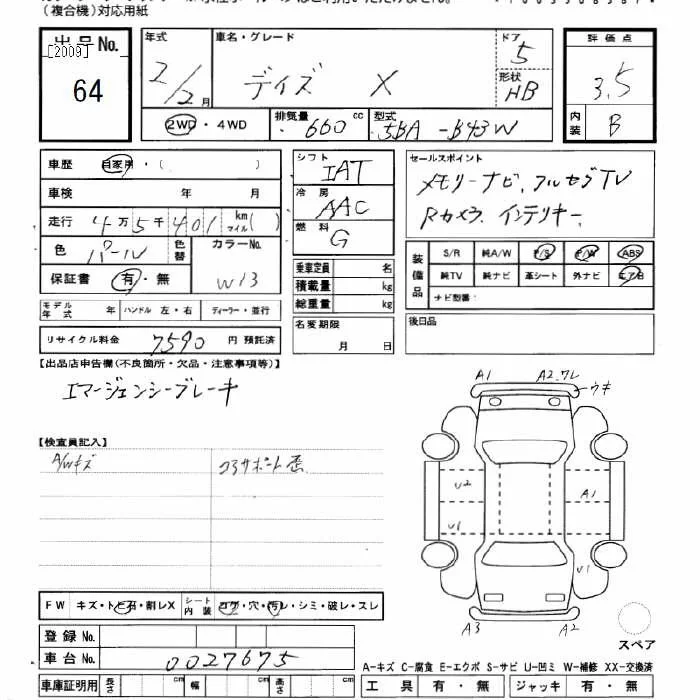 (複合機)対応用紙
出品No. 年式 車名・グレード ドア 5 評価点
[2009] 2/2月 デイズ X 形状 HB 3.5
64
2WD・4WD 排気量 660 cc 型式 5BA-B43W 内装 B
車歴 自家用・( ) シフト IAT セールスポイント
車検 年 月 冷房 AAC メモリーナビ、フルセグTV
走行 4万5千401 km マイル( ) 燃料 G Rカメラ、インテリキー、
色 パール 色替 カラーNo. W13
装備品 S/R 純A/W P/S P/W ABS
保証書 有・無 乗車定員 名 純TV 純ナビ 革シート 外ナビ エアB
積載量 kg ナビ型番
総重量 kg
モデル年式 年 ハンドル 左・右 ディーラー・並行 名変期限 月 日 後日品
リサイクル料金 7590 円 預託済
【出品店申告欄(不良箇所・欠品・注意事項等)】
エマージェンシーブレーキ
A1 A2.ワレ
ウキ
【検査員記入】
A/Wキズ コアサポート歪
U2 A1
U1
U1
FW キズ・トビ石・割レX シート内装 コゲ・穴・汚レ・シミ・破レ・スレ
A3 A2
登録No. スペア
車台No. 0027675
A-キズ C-腐食 E-エクボ S-サビ U-凹ミ W-補修 XX-交換済
車庫証明用 長さ cm 幅 cm 高さ cm 工具 有・無 ジャッキ 有・無